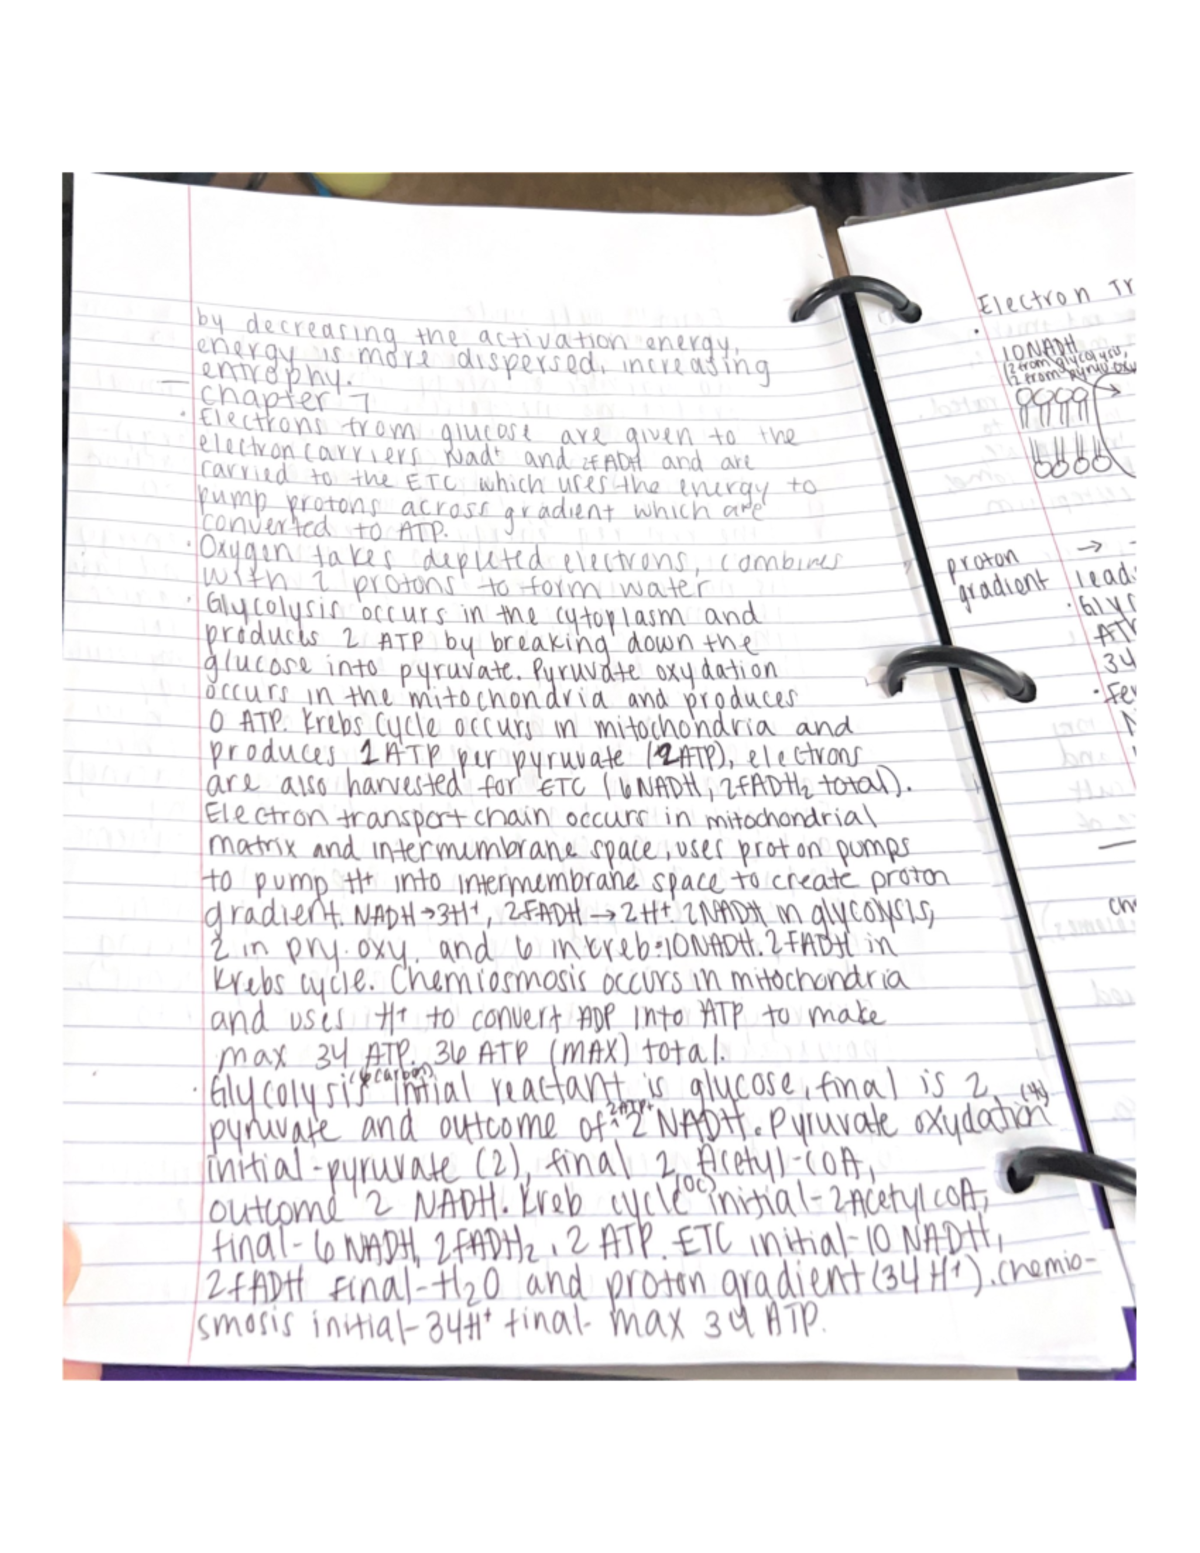 by decreasing the activation energy,
energy is more dispersed, increasing
entrophy.
Chapter 7
• Electrons from glucose are given to the
electron carriers Nad+ and 2FADH and are
carried to the ETC which uses the energy to
pump protons across gradient which are
converted to ATP.
• Oxygen takes depleted electrons, combines
with 2 protons to form water
• Glycolysis occurs in the cytoplasm and
produces 2 ATP by breaking down the
glucose into pyruvate. Pyruvate oxydation
occurs in the mitochondria and produces
0 ATP. Krebs Cycle occurs in mitochondria and
produces 1 ATP per pyruvate (2ATP), electrons
are also harvested for ETC (6NADH, 2FADH2 total).
Electron transport chain occurs in mitochondrial
matrix and intermembrane space, uses proton pumps
to pump H+ into intermembrane space to create proton
gradient. NADH→3H+, 2FADH→2H+. 2NADH in glycolysis,
2 in pry. oxy. and 6 in creb=10NADH. 2FADH in
Krebs cycle. Chemiosmosis occurs in mitochondria
and uses H+ to convert ADP into ATP to make
max 34 ATP. 36 ATP (MAX) total.
• Glycolysis (6carbon) initial reactant is glucose, final is 2
pyruvate and outcome of 2ATP+ 2 NADH. Pyruvate oxydation
initial-pyruvate (2), final 2 Acetyl-COA,
outcome 2 NADH. Kreb cycle (0C) initial-2AcetylCOA,
final-6 NADH, 2FADH2, 2 ATP. ETC initial-10 NADH,
2FADH final-H2O and proton gradient (34H+). Chemio-
smosis initial-34H+ final- max 34 ATP.
Electron Tr
10NADH
(2 from glycolysis,
proton
gradient
→
lead
• Glyc
34